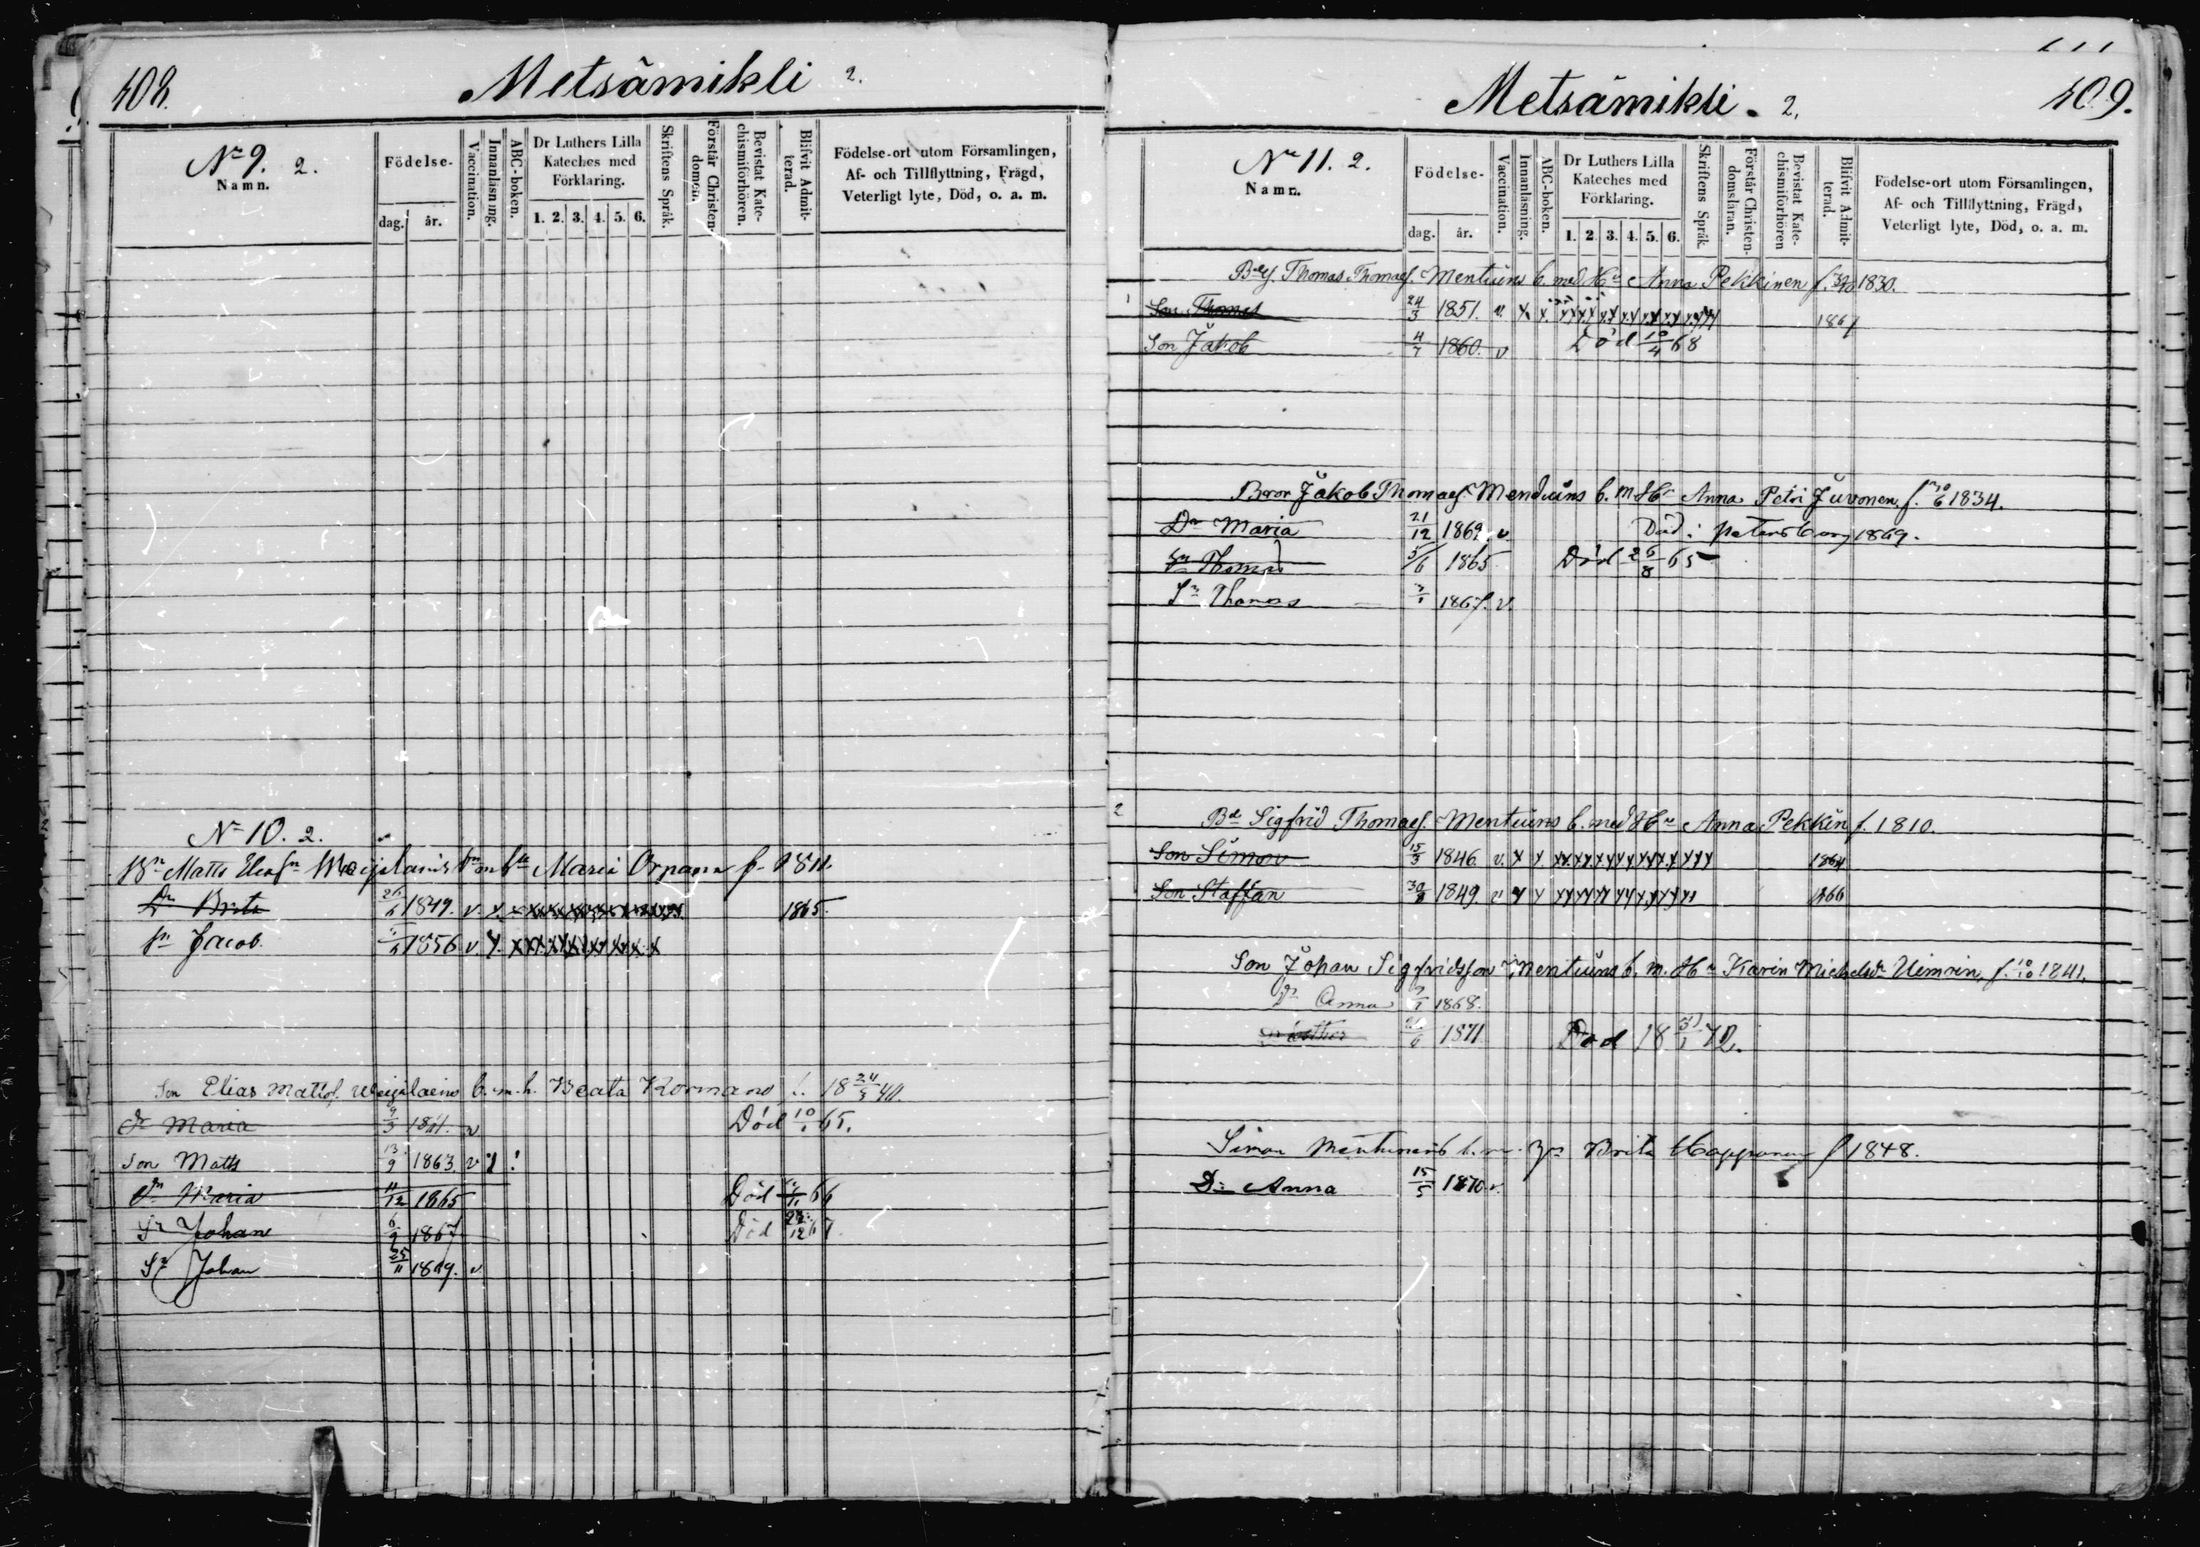 408.
Metsämikli 2.
No 9. 2.
Namn.
Födelse-
dag. år.
Vaccination.
Innanläsning.
ABC-boken.
Dr Luthers Lilla
Kateches med
Förklaring.
1. 2. 3. 4. 5. 6.
Skriftens Språk.
Förstår Christen-
domen.
Bevistat Kate-
chismiförhören.
Blifvit Admit-
terad.
Födelse-ort utom Församlingen,
Af- och Tillflyttning, Frägd,
Veterligt lyte, Död, o. a. m.
No 10. 2.
Matts Maria f. 1811.
Dr Brita 1849. v. x. 1865.
Sn Jacob 1856 v. x.
Son Elias b. m. h. Beata f. 18 24/3 40.
Dr Maria 9/3 1861. v Död 65.
Son Matts 13/9 1863 v
Dr Maria 11/12 1865 Död 66
Sn Johan 6/9 1867 Död 22/12 67.
Sn Johan 25/11 1869. v
409.
Metsämikli. 2.
No 11. 2.
Namn.
Födelse-
dag. år.
Vaccination.
Innanläsning.
ABC-boken.
Dr Luthers Lilla
Kateches med
Förklaring.
1. 2. 3. 4. 5. 6.
Skriftens Språk.
Förstår Christen-
domsläran.
Bevistat Kate-
chismiförhören
Blifvit Admit-
terad.
Födelse-ort utom Församlingen,
Af- och Tillflyttning, Frägd,
Veterligt lyte, Död, o. a. m.
Thomas Thomasf. Mentuins b. med Hu Anna Pekkinen f. 1830.
1 Son Thomas 24/3 1851. v. x x. 1867
Son Jakob 4/7 1860. v Död 10/4 68
Bror Jakob Thomasf. Mentuins b. m Hu Anna Petri Juvonen f. 1834.
Dr Maria 21/12 1869. v Död i Petersborg 1869.
Sn Thomas 5/6 1865 Död 26/8 65
Sn Thomas 1867. v.
2 Br Sigfrid Thomasf. Mentuins b. med Hu Anna Pekkin f. 1810.
Son Simon 15/3 1846 v. x x 1864
Son Staffan 30/8 1849 v x x 1866
Son Johan Sigfridsson Mentuins b. m. Hu Karin Michelsdr f. 10/10 1841.
Dr Anna 1868.
1871 Död 18 31/1 72.
Simon Mentuins b. m. Brita f 1848.
Dr Anna 15/5 1870 v.